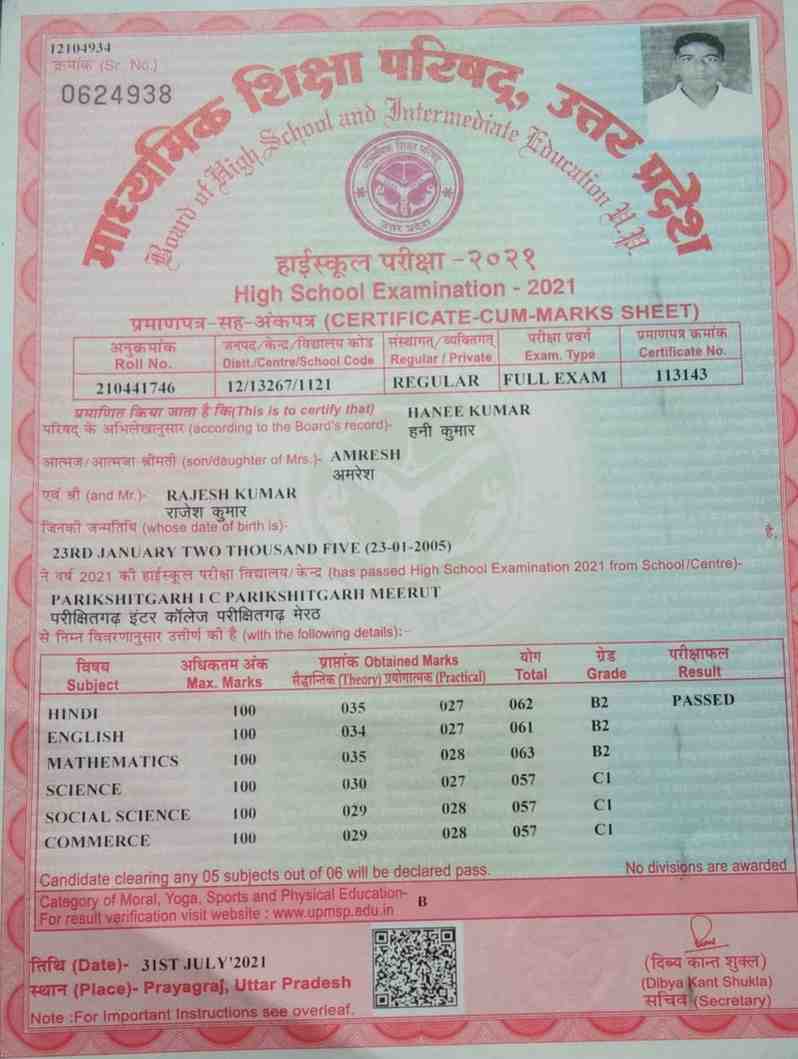 12104934
क्रमांक (Sr. No.)
0624938
माध्यमिक शिक्षा परिषद्, उत्तर प्रदेश
Board of High School and Intermediate Education U.P.
माध्यमिक शिक्षा परिषद्
उत्तर प्रदेश
हाईस्कूल परीक्षा -२०२१
High School Examination - 2021
प्रमाणपत्र-सह-अंकपत्र (CERTIFICATE-CUM-MARKS SHEET)
अनुक्रमांक जनपद/केन्द्र/विद्यालय कोड संस्थागत/व्यक्तिगत परीक्षा प्रवर्ग प्रमाणपत्र क्रमांक
Roll No. Distt./Centre/School Code Regular / Private Exam. Type Certificate No.
210441746 12/13267/1121 REGULAR FULL EXAM 113143
प्रमाणित किया जाता है कि(This is to certify that) HANEE KUMAR
परिषद के अभिलेखानुसार (according to the Board's record)- हनी कुमार
आत्मज/आत्मजा श्रीमती (son/daughter of Mrs.)- AMRESH
अमरेश
एवं श्री (and Mr.)- RAJESH KUMAR
राजेश कुमार
जिनकी जन्मतिथि (whose date of birth is)-
23RD JANUARY TWO THOUSAND FIVE (23-01-2005) है,
ने वर्ष 2021 की हाईस्कूल परीक्षा विद्यालय/केन्द्र (has passed High School Examination 2021 from School/Centre)-
PARIKSHITGARH I C PARIKSHITGARH MEERUT
परीक्षितगढ़ इंटर कॉलेज परीक्षितगढ़ मेरठ
से निम्न विवरणानुसार उत्तीर्ण की है (with the following details):-
विषय अधिकतम अंक प्राप्तांक Obtained Marks योग ग्रेड परीक्षाफल
Subject Max. Marks सैद्धान्तिक (Theory) प्रयोगात्मक (Practical) Total Grade Result
HINDI 100 035 027 062 B2 PASSED
ENGLISH 100 034 027 061 B2
MATHEMATICS 100 035 028 063 B2
SCIENCE 100 030 027 057 C1
SOCIAL SCIENCE 100 029 028 057 C1
COMMERCE 100 029 028 057 C1
Candidate clearing any 05 subjects out of 06 will be declared pass. No divisions are awarded
Category of Moral, Yoga, Sports and Physical Education- B
For result verification visit website : www.upmsp.edu.in
तिथि (Date)- 31ST JULY'2021
स्थान (Place)- Prayagraj, Uttar Pradesh
Note :For Important Instructions see overleaf.
(दिब्य कान्त शुक्ल)
(Dibya Kant Shukla)
सचिव (Secretary)